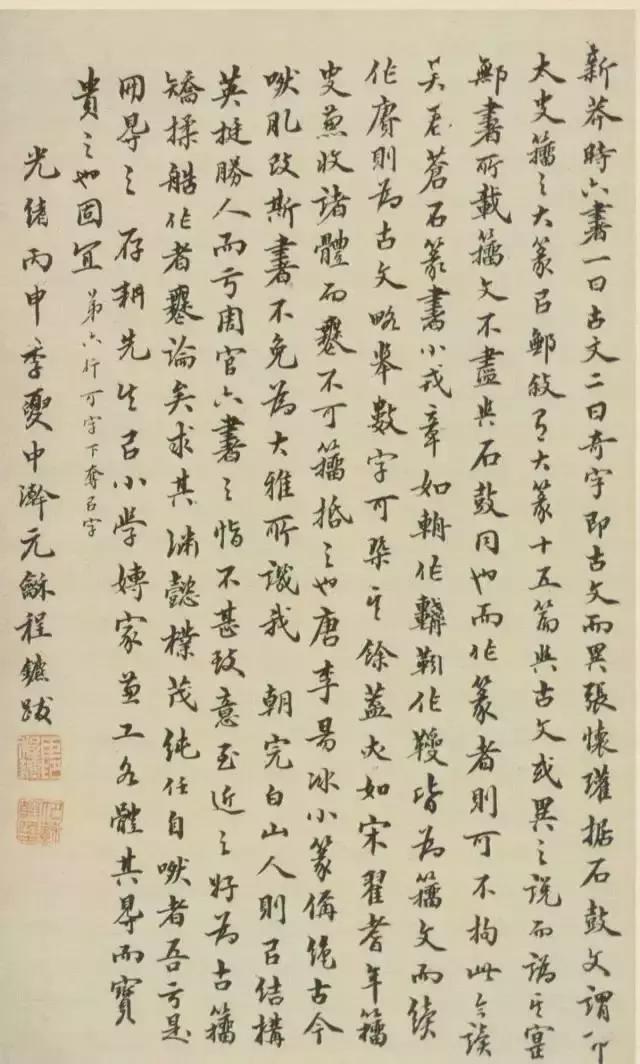 新莽時六書一曰古文二曰奇字即古文而異張懷瓘據石鼓文謂即
太史籀之大篆㠯鄦敘有大篆十五篇與古文或異之說而譌其實
鄦書所載籀文不盡與石鼓同也而作篆者則可不拘此今讀
吳君蒼石篆書小戎章如輈作 靷作 皆為籀文而續
作賡則為古文略舉數字可槩其餘蓋夫如宋翟耆年籀
史兼收諸體而要不可籀抵之也唐李昜冰小篆偁絕古今
然肊改斯書不免為大雅所譏我 朝完白山人則㠯結構
英挺勝人而于周官六書之恉不甚致意至近之好為古籀
矯揉皓作者要論矣求其淵懿樸茂純任自然者吾于是
冊㝵之 存耕先生㠯小學專家兼工各體其㝵而寶
貴之也固宜 第六行可字下奪㠯字
光緒丙申季夏中澣元龢程鑣跋